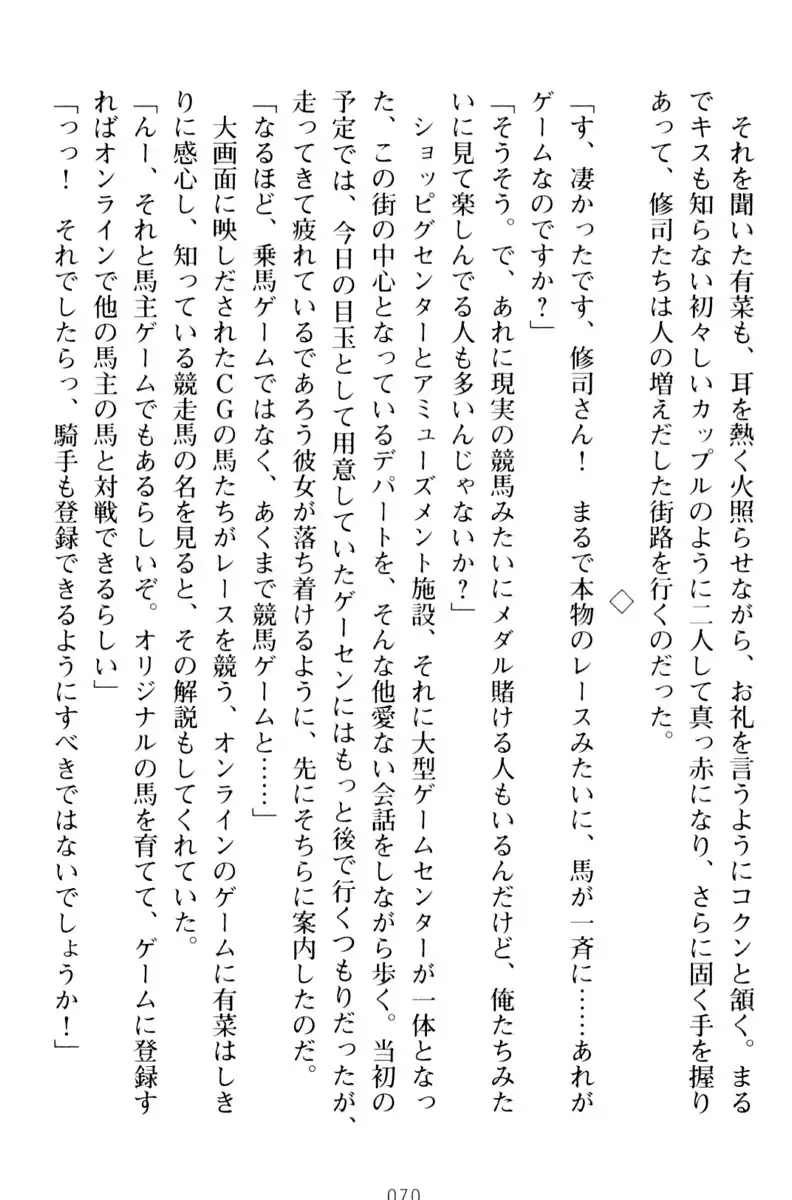 それを聞いた有菜も、耳を熱く火照らせながら、お礼を言うようにコクンと頷く。まる
でキスも知らない初々しいカップルのように二人して真っ赤になり、さらに固く手を握り
あって、修司たちは人の増えだした街路を行くのだった。
◇
「す、凄かったです、修司さん！　まるで本物のレースみたいに、馬が一斉に……あれが
ゲームなのですか？」
「そうそう。で、あれに現実の競馬みたいにメダル賭ける人もいるんだけど、俺たちみた
いに見て楽しんでる人も多いんじゃないか？」
ショッピグセンターとアミューズメント施設、それに大型ゲームセンターが一体となっ
た、この街の中心となっているデパートを、そんな他愛ない会話をしながら歩く。当初の
予定では、今日の目玉として用意していたゲーセンにはもっと後で行くつもりだったが、
走ってきて疲れているであろう彼女が落ち着けるように、先にそちらに案内したのだ。
「なるほど、乗馬ゲームではなく、あくまで競馬ゲームと……」
大画面に映しだされたＣＧの馬たちがレースを競う、オンラインのゲームに有菜はしき
りに感心し、知っている競走馬の名を見ると、その解説もしてくれていた。
「んー、それと馬主ゲームでもあるらしいぞ。オリジナルの馬を育てて、ゲームに登録す
ればオンラインで他の馬主の馬と対戦できるらしい」
「っっ！　それでしたらっ、騎手も登録できるようにすべきではないでしょうか！」
070